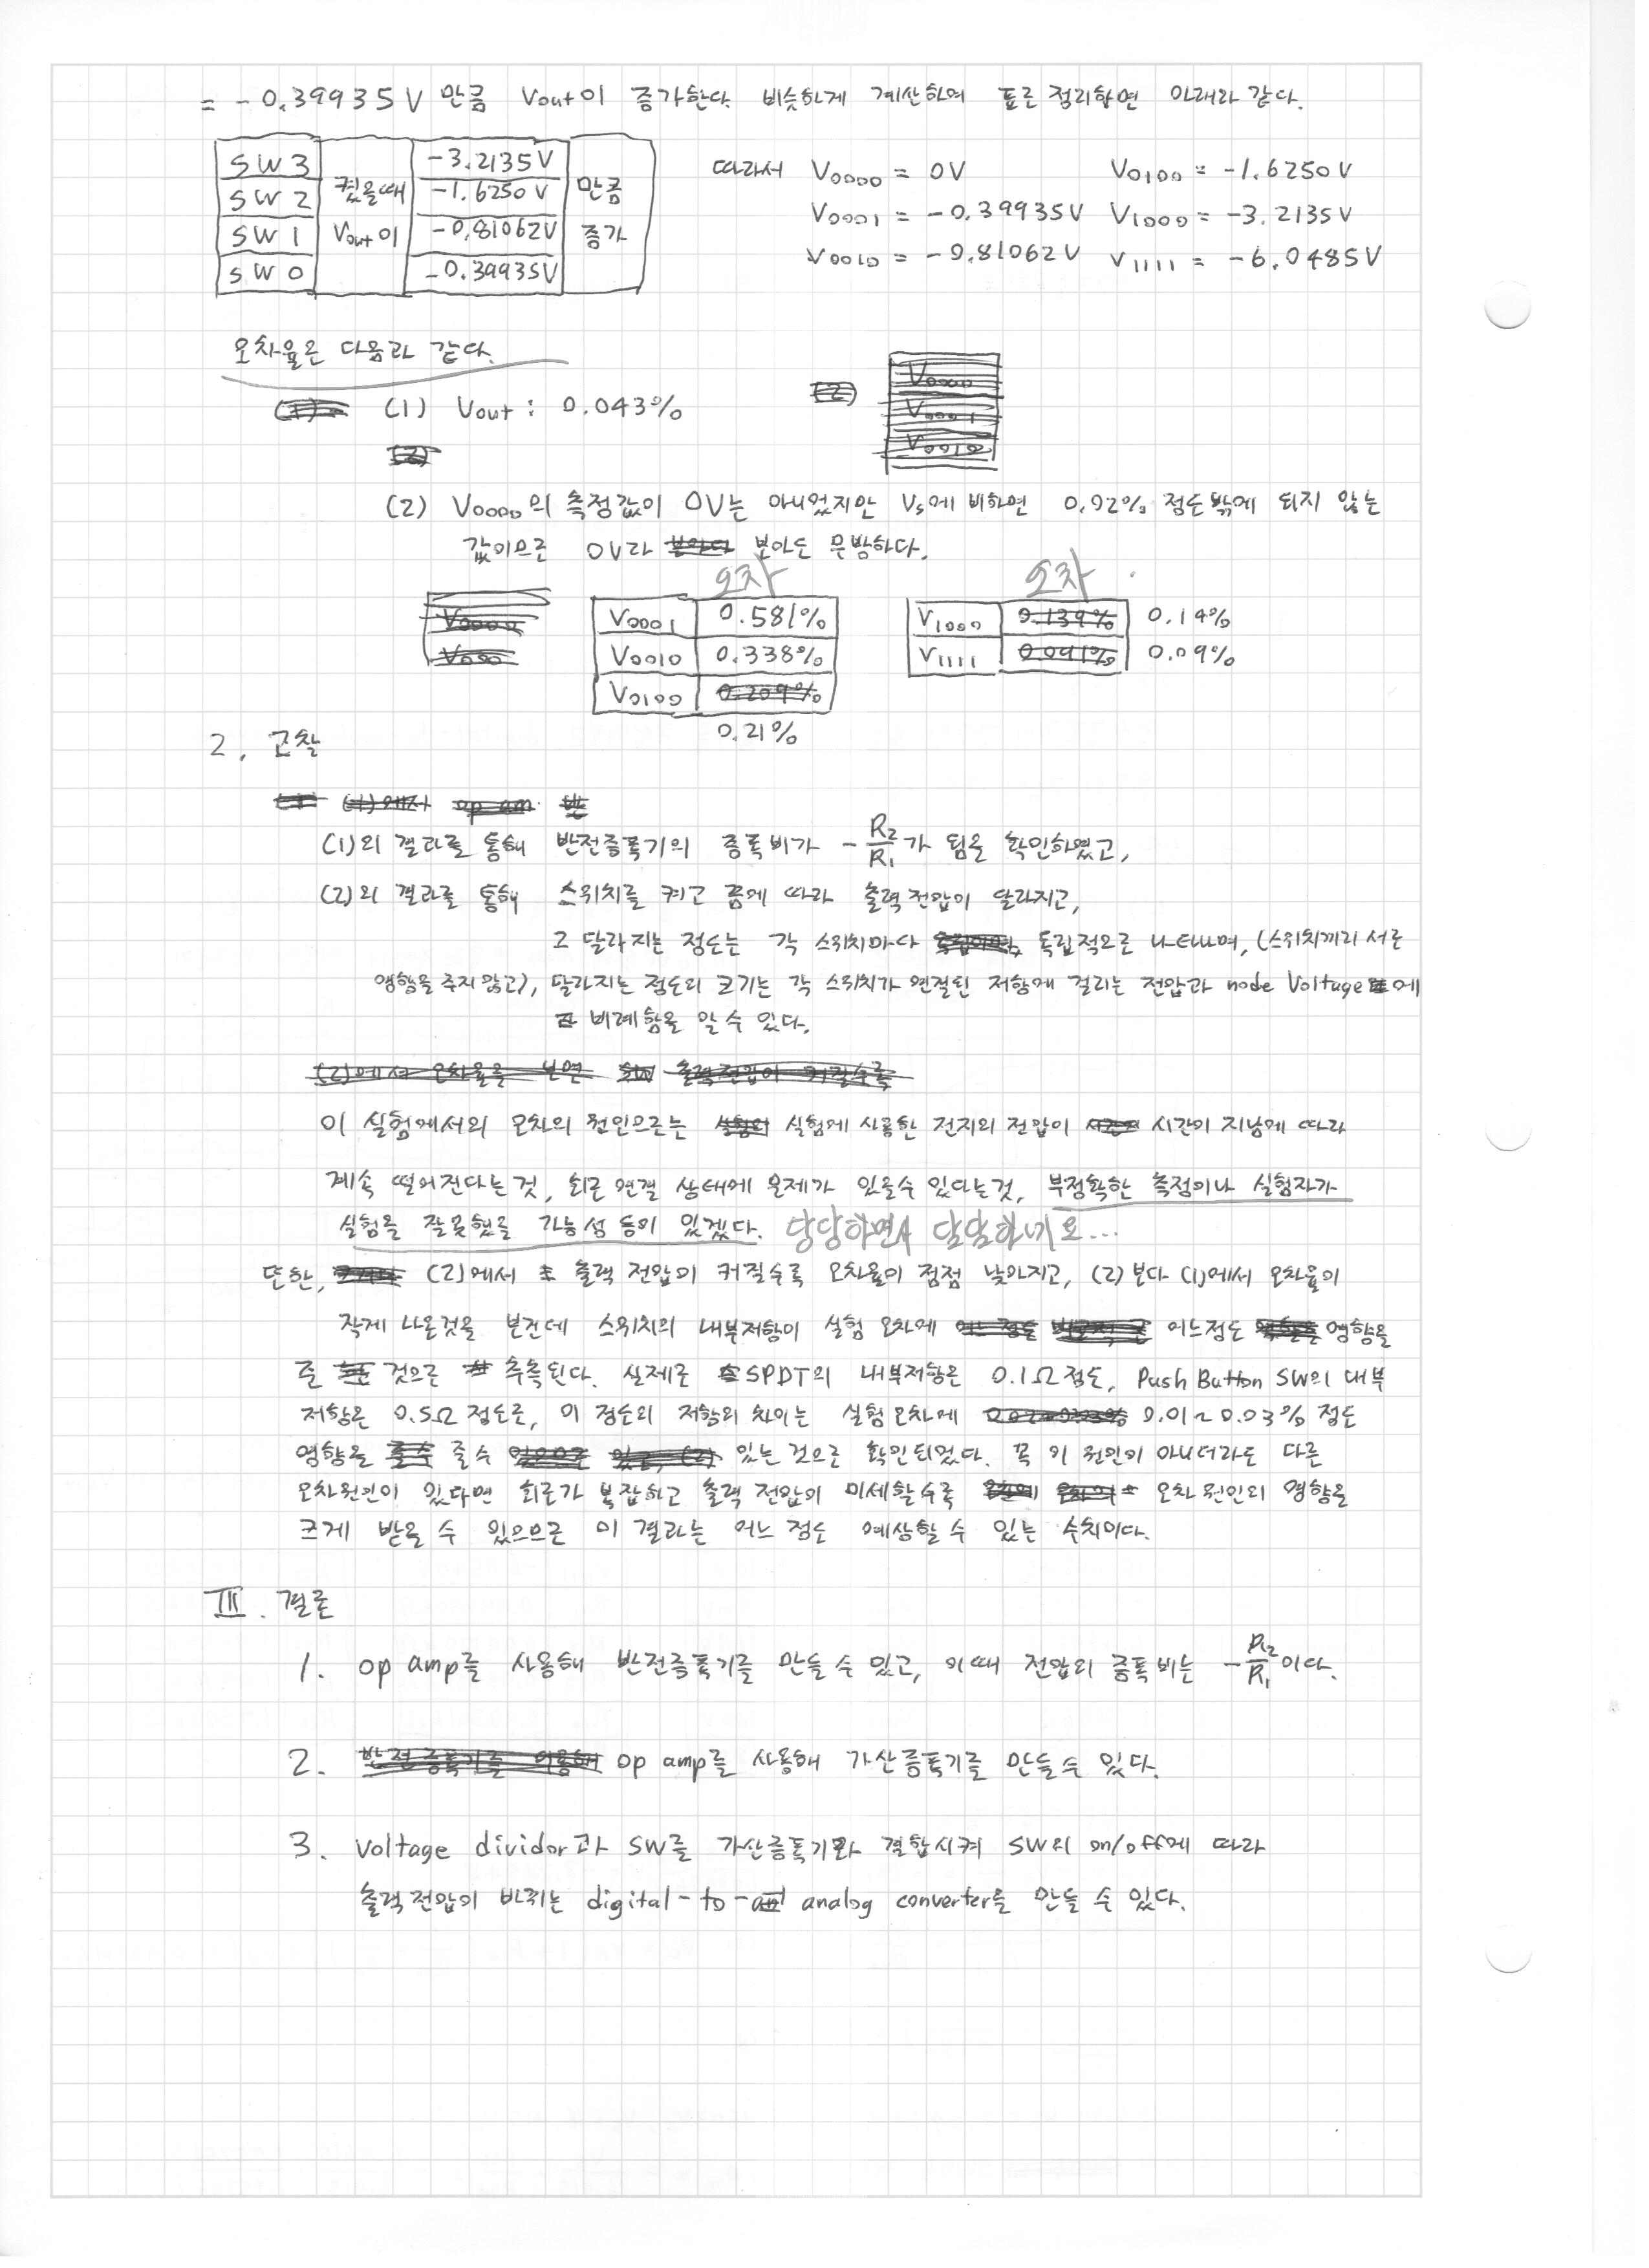 = -0.39935V 만큼 Vout이 증가한다. 비슷하게 계산하여 표로 정리하면 아래와 같다.
SW3 -3.2135V
SW2 켰을때 -1.6250V 만큼
SW1 Vout이 -0.81062V 증가
SW0 -0.39935V
따라서 V0000 = 0V V0100 = -1.6250V
V0001 = -0.39935V V1000 = -3.2135V
V0010 = -0.81062V V1111 = -6.0485V
오차율은 다음과 같다.
(1) Vout : 0.043%
(2) V0000의 측정값이 0V는 아니었지만 Vs에 비하면 0.02% 정도밖에 되지 않는
값이므로 0V라 보아도 무방하다.
오차 오차
V0001 0.581% V1000 0.14%
V0010 0.338% V1111 0.09%
V0100
0.21%
2. 고찰
(1)의 결과를 통해 반전증폭기의 증폭비가 -R2/R1가 됨을 확인하였고,
(2)의 결과를 통해 스위치를 켜고 끔에 따라 출력전압이 달라지고,
그 달라지는 정도는 각 스위치마다 독립적으로 나타나며, (스위치끼리 서로
영향을 주지 않고), 달라지는 정도의 크기는 각 스위치가 연결된 저항에 걸리는 전압과 node Voltage에
비례함을 알 수 있다.
이 실험에서의 오차의 원인으로는 실험에 사용한 전지의 전압이 시간이 지남에 따라
계속 떨어진다는 것, 회로 연결 상태에 문제가 있을수 있다는것, 부정확한 측정이나 실험자가
실험을 잘못했을 가능성 등이 있겠다. 당당하면서 답답하네요...
또한, (2)에서 출력 전압이 커질수록 오차율이 점점 낮아지고, (2)보다 (1)에서 오차율이
작게 나온것을 보건데 스위치의 내부저항이 실험 오차에 어느정도 영향을
준 것으로 추측된다. 실제로 SPDT의 내부저항은 0.1Ω정도, Push Button SW의 내부
저항은 0.5Ω 정도로, 이 정도의 저항의 차이는 실험오차에 0.01~0.03% 정도
영향을 줄수 있는 것으로 확인되었다. 꼭 이 원인이 아니더라도 다른
오차원인이 있다면 회로가 복잡하고 출력 전압이 미세할수록 오차 원인의 영향을
크게 받을 수 있으므로 이 결과는 어느 정도 예상할 수 있는 수치이다.
Ⅲ. 결론
1. op amp를 사용해 반전증폭기를 만들 수 있고, 이때 전압의 증폭비는 -R2/R1이다.
2. op amp를 사용해 가산증폭기를 만들수 있다.
3. Voltage dividor과 SW를 가산증폭기와 결합시켜 SW의 on/off에 따라
출력전압이 바뀌는 digital-to-analog converter를 만들 수 있다.